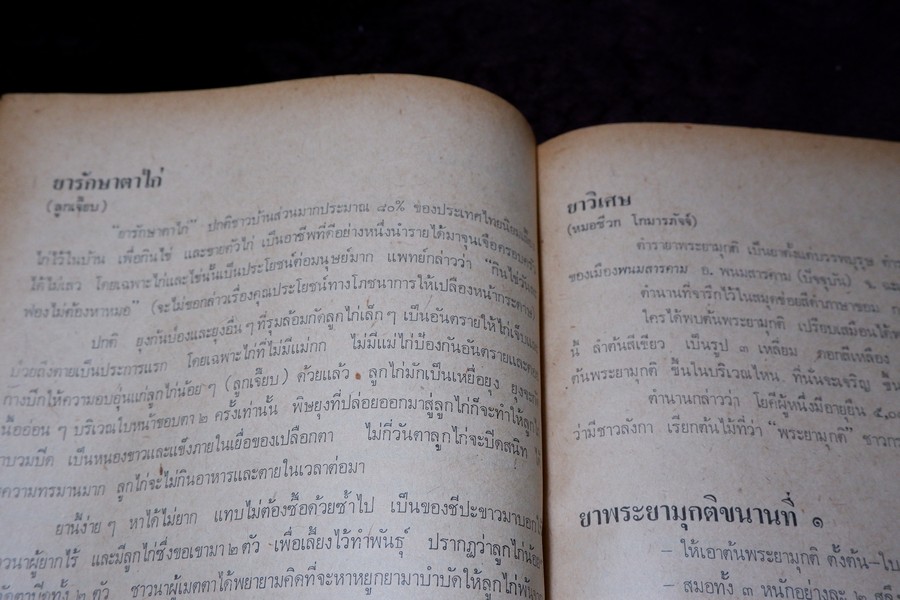 ยารักษาตาไก่
(ลูกเจี๊ยบ)
"ยารักษาตาไก่" ปกติชาวบ้านส่วนมากประมาณ ๘๐% ของประเทศไทยนิยมเลี้ยง
ไก่ไว้ในบ้าน เพื่อกินไข่ และขายตัวไก่ เป็นอาชีพที่ดีอย่างหนึ่งนำรายได้มาจุนเจือครอบครัว
ได้ไม่เลว โดยเฉพาะไก่และไข่นั้นเป็นประโยชน์ต่อมนุษย์มาก แพทย์กล่าวว่า "กินไข่วันละ
ฟองไม่ต้องหาหมอ" (จะไม่ขอกล่าวเรื่องคุณประโยชน์ทางโภชนาการให้เปลืองหน้ากระดาษ)
ปกติ ยุงก้นปล่องและยุงอื่น ๆ ที่รุมล้อมกัดลูกไก่เล็ก ๆ เป็นอันตรายให้ไก่เจ็บ
ป่วยถึงตายเป็นประการแรก โดยเฉพาะไก่ที่ไม่มีแม่กก ไม่มีแม่ไก่ป้องกันอันตรายและคอย
กางปีกให้ความอบอุ่นแก่ลูกไก่น้อย ๆ (ลูกเจี๊ยบ) ด้วยแล้ว ลูกไก่มักเป็นเหยื่อยุง ยุงจะ
เนื้ออ่อน ๆ บริเวณใบหน้าขอบตา ๒ ครั้งเท่านั้น พิษยุงที่ปล่อยออกมาสู่ลูกไก่ก็จะทำให้ลูกไก่
ตาบวมปิด เป็นหนองขาวและแข็งภายในเยื่อของเปลือกตา ไม่กี่วันตาลูกไก่จะปิดสนิท
ความทรมานมาก ลูกไก่จะไม่กินอาหารและตายในเวลาต่อมา
ยานี้ง่าย ๆ หาได้ไม่ยาก แทบไม่ต้องซื้อด้วยซ้ำไป เป็นของชีปะขาวมาบอกให้
ชาวนาผู้ยากไร้ และมีลูกไก่ซึ่งขอเขามา ๒ ตัว เพื่อเลี้ยงไว้ทำพันธุ์ ปรากฏว่าลูกไก่น้อย
ตาบอดทั้ง ๒ ตัว ชาวนาผู้เมตตาได้พยายามคิดที่จะหาหยูกยามาบำบัดให้ลูกไก่พ้น
ยาวิเศษ
(หมอชีวก โกมารภัจจ์)
ตำรายาพระยามุกติ เป็นยาตั้งแต่บรรพบุรุษ
ของเมืองพนมสารคาม อ. พนมสารคาม (ปัจจุบัน) จ.
ตำนานที่จารึกไว้ในสมุดข่อยสีดำภาษาขอม
ใครได้พบต้นพระยามุกติ เปรียบเสมือนได้
นี้ ลำต้นสีเขียว เป็นรูป ๓ เหลี่ยม ดอกสีเหลือง
ต้นพระยามุกติ ขึ้นในบริเวณไหน ที่นั่นจะเจริญ ขึ้น
ตำนานกล่าวว่า โยคีผู้หนึ่งมีอายุยืน
ว่ามีชาวลังกา เรียกต้นไม้ที่ว่า "พระยามุกติ"
ยาพระยามุกติขนานที่ ๑
– ให้เอาต้นพระยามุกติ ตั้งต้น–ใบ
– สมอทั้ง ๓ หนักอย่างละ ๒ สลึง